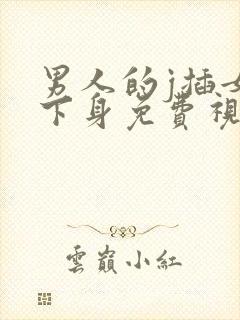 男人的j插女
下身免費視
雲巔小紅